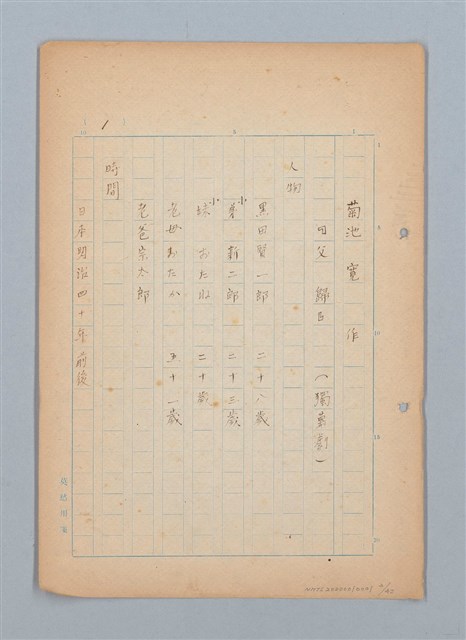 菊池 寬 作
(獨幕劇)
人物
黑田賢一郎 二十八歲
小 新二郎 二十三歲
小妹 おたね 二十歲
老母おたか 五十一歲
老爸宗太郎
時間
日本明治四十年前後
1